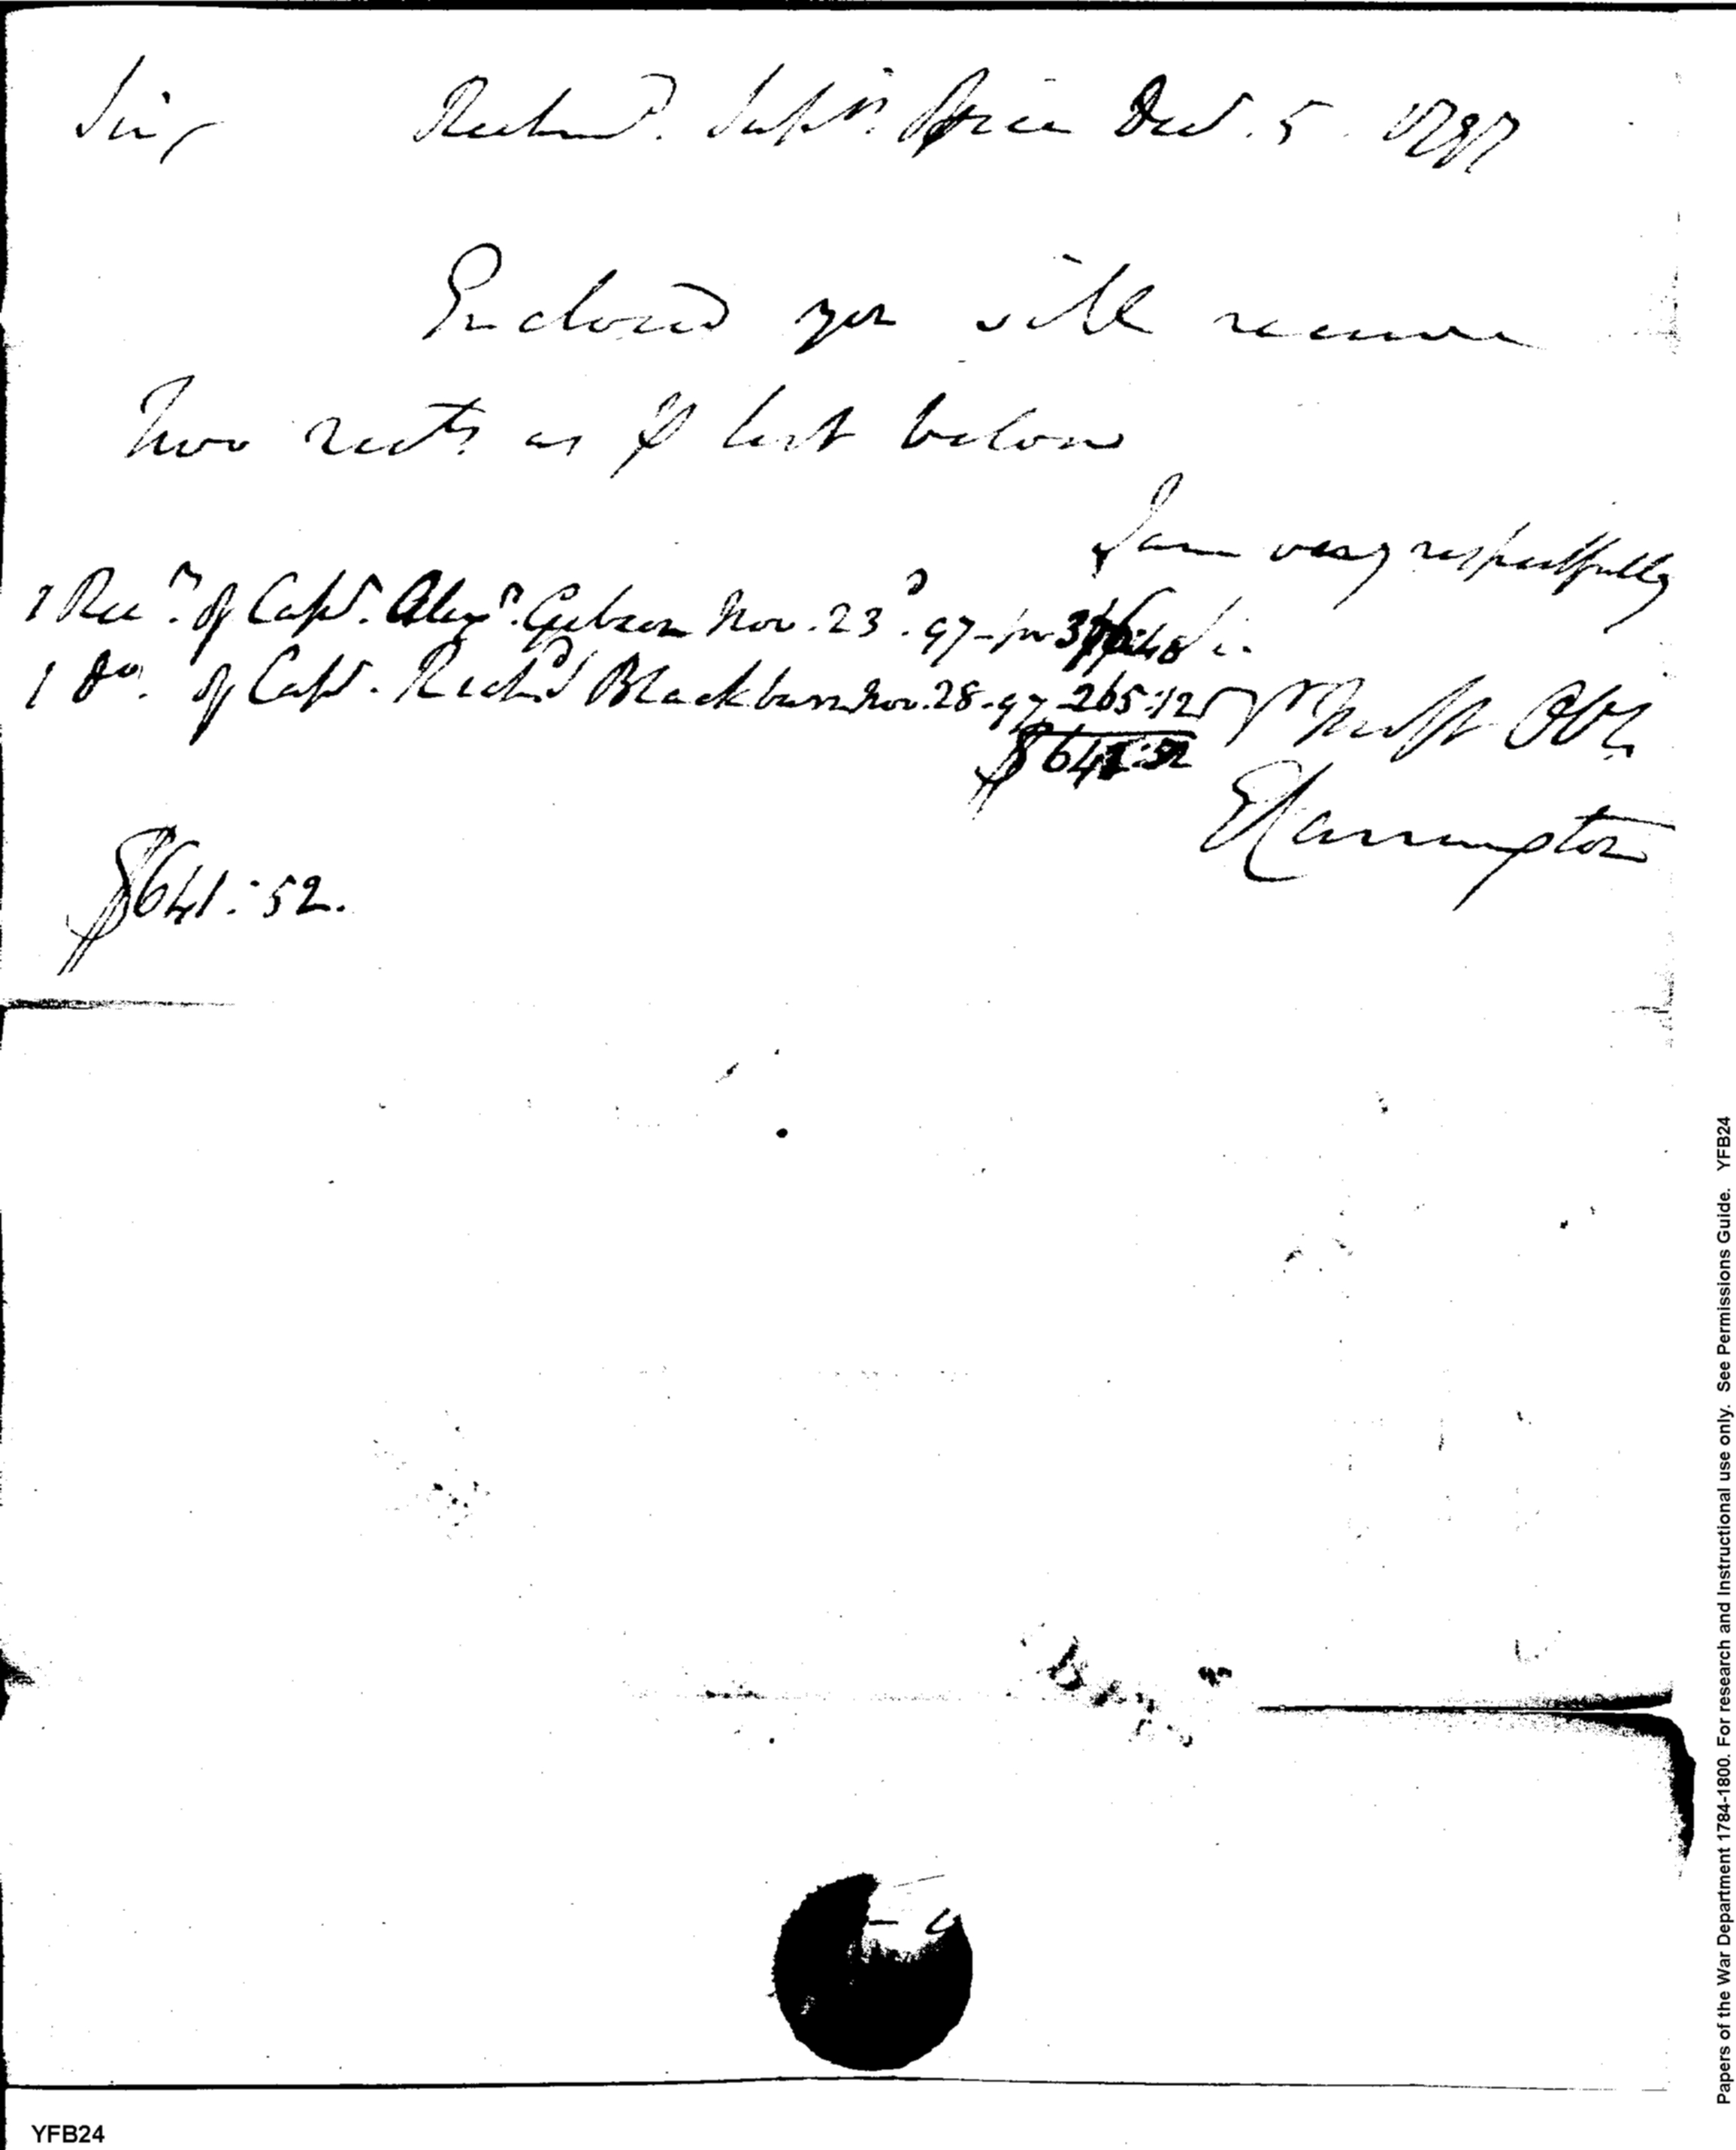 Sir, Richmd. Supr's. Office Decr. 5. 1797
Enclosed you will receive
two rects as P list below
I am very respectfully
Sir
1 Rect. of Capt. Alexr. Gibson Nov. 23d. 97 - for 376:40
1 Do. of Capt. Richd Blackburn Nov. 28 - 97 265:12
Yr Most Obt
$641:52
ECarrington
$641:52.
Papers of the War Department 1784-1800. For research and Instructional use only. See Permissions Guide. YFB24
YFB24